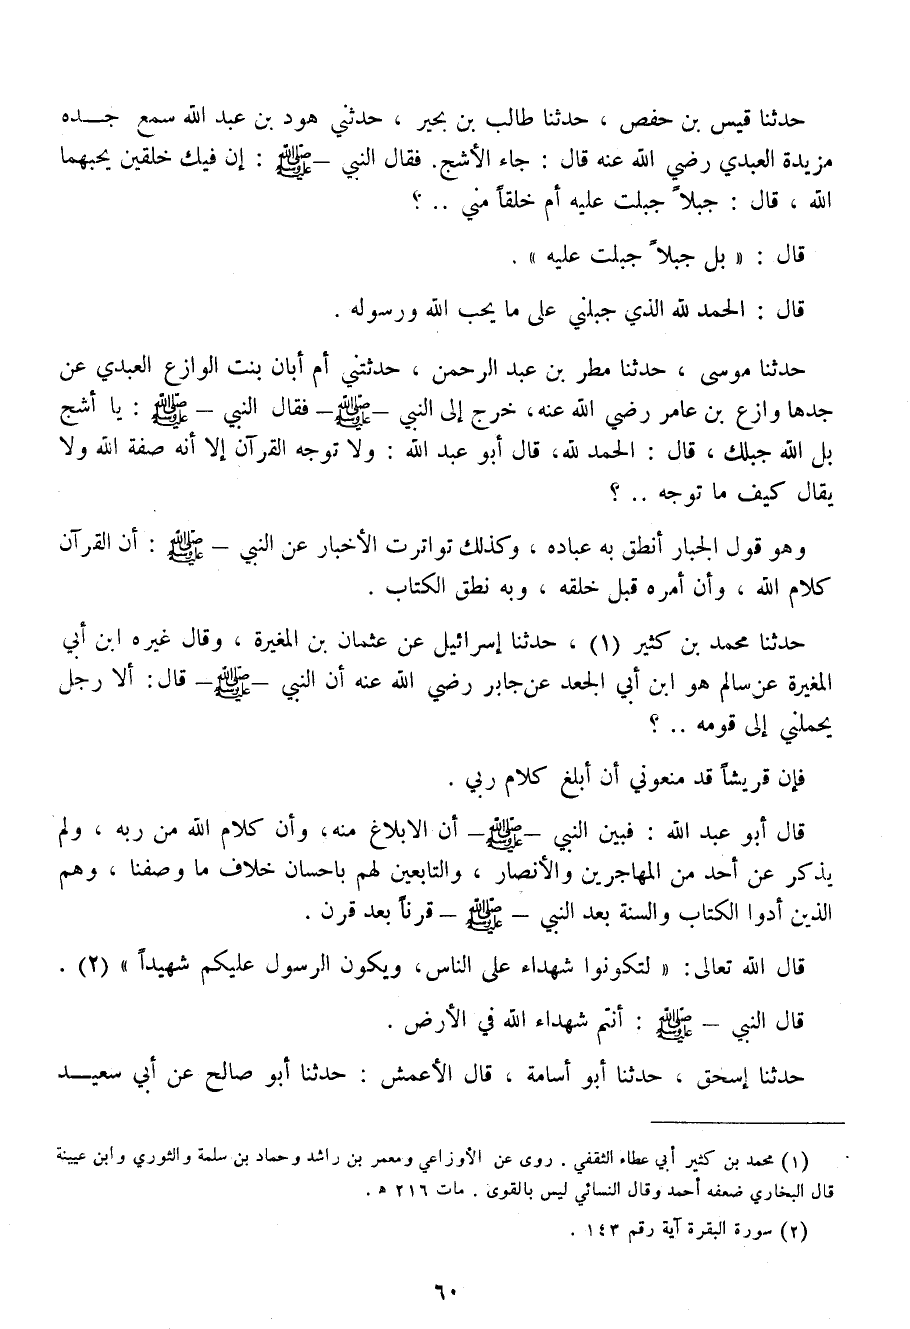 حدثنا قيس بن حفص ، حدثنا طالب بن بحير ، حدثني هود بن عبد الله سمع جـــده
مزيدة العبدي رضي الله عنه قال : جاء الأشج. فقال النبي – ﷺ : إن فيك خلقين يحبهما
الله ، قال : جبلاً جبلت عليه أم خلقاً مني .. ؟
قال : « بل جبلاً جبلت عليه » .
قال : الحمد لله الذي جبلني على ما يحب الله ورسوله .
حدثنا موسى ، حدثنا مطر بن عبد الرحمن ، حدثتني أم أبان بنت الوازع العبدي عن
جدها وازع بن عامر رضي الله عنه، خرج إلى النبي –ﷺ– فقال النبي – ﷺ : يا أشج
بل الله جبلك ، قال : الحمد لله، قال أبو عبد الله : ولا توجه القرآن إلا أنه صفة الله ولا
يقال كيف ما توجه .. ؟
وهو قول الجبار أنطق به عباده ، وكذلك تواترت الأخبار عن النبي – ﷺ : أن القرآن
كلام الله ، وأن أمره قبل خلقه ، وبه نطق الكتاب .
حدثنا محمد بن كثير (١) ، حدثنا إسرائيل عن عثمان بن المغيرة ، وقال غيره ابن أبي
المغيرة عن سالم هو ابن أبي الجعد عن جابر رضي الله عنه أن النبي –ﷺ– قال: ألا رجل
يحملني إلى قومه .. ؟
فإن قريشاً قد منعوني أن أبلغ كلام ربي .
قال أبو عبد الله : فبين النبي –ﷺ– أن الابلاغ منه، وأن كلام الله من ربه ، ولم
يذكر عن أحد من المهاجرين والأنصار ، والتابعين لهم باحسان خلاف ما وصفنا ، وهم
الذين أدوا الكتاب والسنة بعد النبي – ﷺ – قرناً بعد قرن .
قال الله تعالى: « لتكونوا شهداء على الناس، ويكون الرسول عليكم شهيداً » (٢) .
قال النبي – ﷺ : أنتم شهداء الله في الأرض .
حدثنا إسحق ، حدثنا أبو أسامة ، قال الأعمش : حدثنا أبو صالح عن أبي سعيـــد
(١) محمد بن كثير أبي عطاء الثقفي . روى عن الأوزاعي ومعمر بن راشد وحماد بن سلمة والثوري وابن عيينة
قال البخاري ضعفه أحمد وقال النسائي ليس بالقوى . مات ٢١٦ ه .
(٢) سورة البقرة آية رقم ١٤٣ .
٦٠